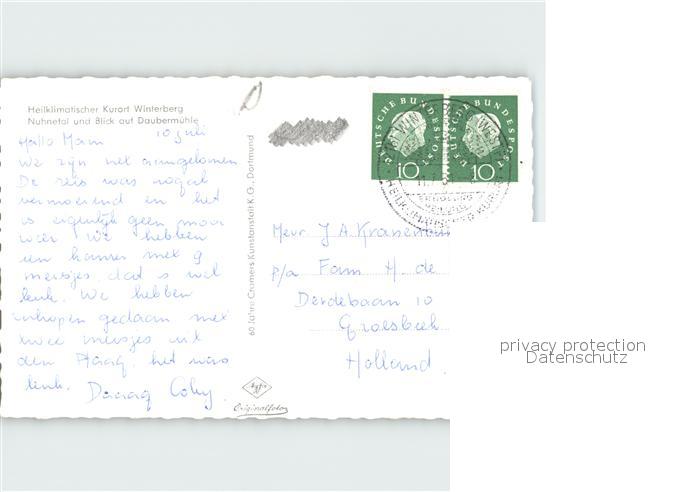 Heilklimatischer Kurort Winterberg
Nuhnetal und Blick auf Daubermühle
Hallo Mam 10 juli
We zijn net aangekomen
De reis was nogal
vermoeiend en het
is eigenlijk geen mooi
weer We hebben
een kamer met 9
meisjes, dat is wel
leuk. We hebben
inkopen gedaan met
twee meisjes uit
den Haag, het was
leuk. Daaag Coby.
60 Jahre Cramers Kunstanstalt K G., Dortmund
Agfa
Originalfoto
DEUTSCHE BUNDESPOST
10
DEUTSCHE BUNDESPOST
10
HEILKLIMATISCHER KURORT
ERHOLUNG
Mevr J A Kranenbur
p/a Fam H. de
Derdebaan 10
Groesbeek
Holland.
privacy protection
Datenschutz